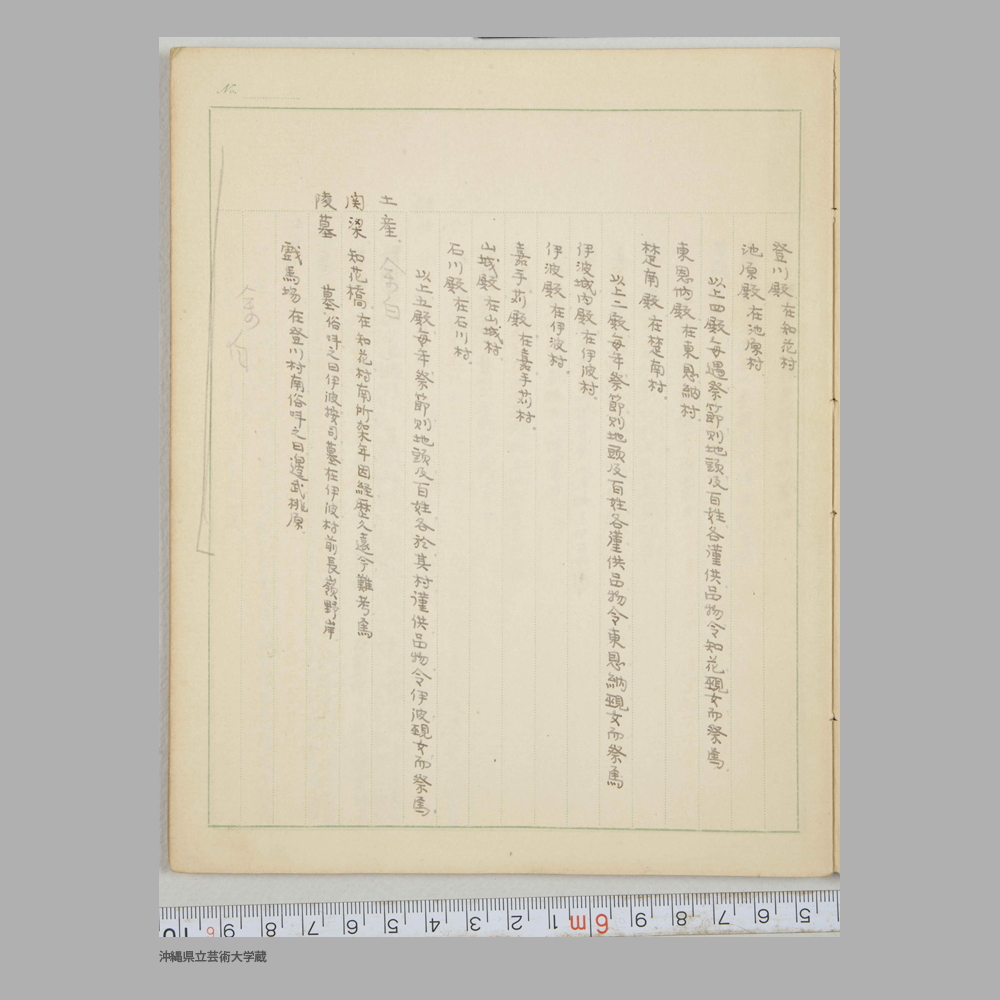 No.
登川殿 在知花村.
池原殿 在池原村
以上四殿毎遇祭節則地頭及百姓各謹供品物令知花覡女而祭焉.
東恩納殿 在東恩納村.
楚南殿 在楚南村.
以上二殿毎年祭節則地頭及百姓各謹供品物令東恩納覡女而祭焉
伊波城内殿 在伊波村.
伊波殿 在伊波村.
嘉手苅殿 在嘉手苅村.
山城殿 在山城村.
石川殿 在石川村.
以上五殿毎年祭節則地頭及百姓各於其村謹供品物令伊波覡女而祭焉.
土産. 余白
関梁 知花橋 在知花村南所架年因経歴久遠今難考焉
陵墓 墓 俗呼之曰伊波按司墓在伊波村前長嶺野岸
戯馬場 在登川村南俗呼之曰邊武桃原.
余白
10 9 8 7 6 5 4 3 2 1 6m 9 8 7 6 5
沖縄県立芸術大学蔵